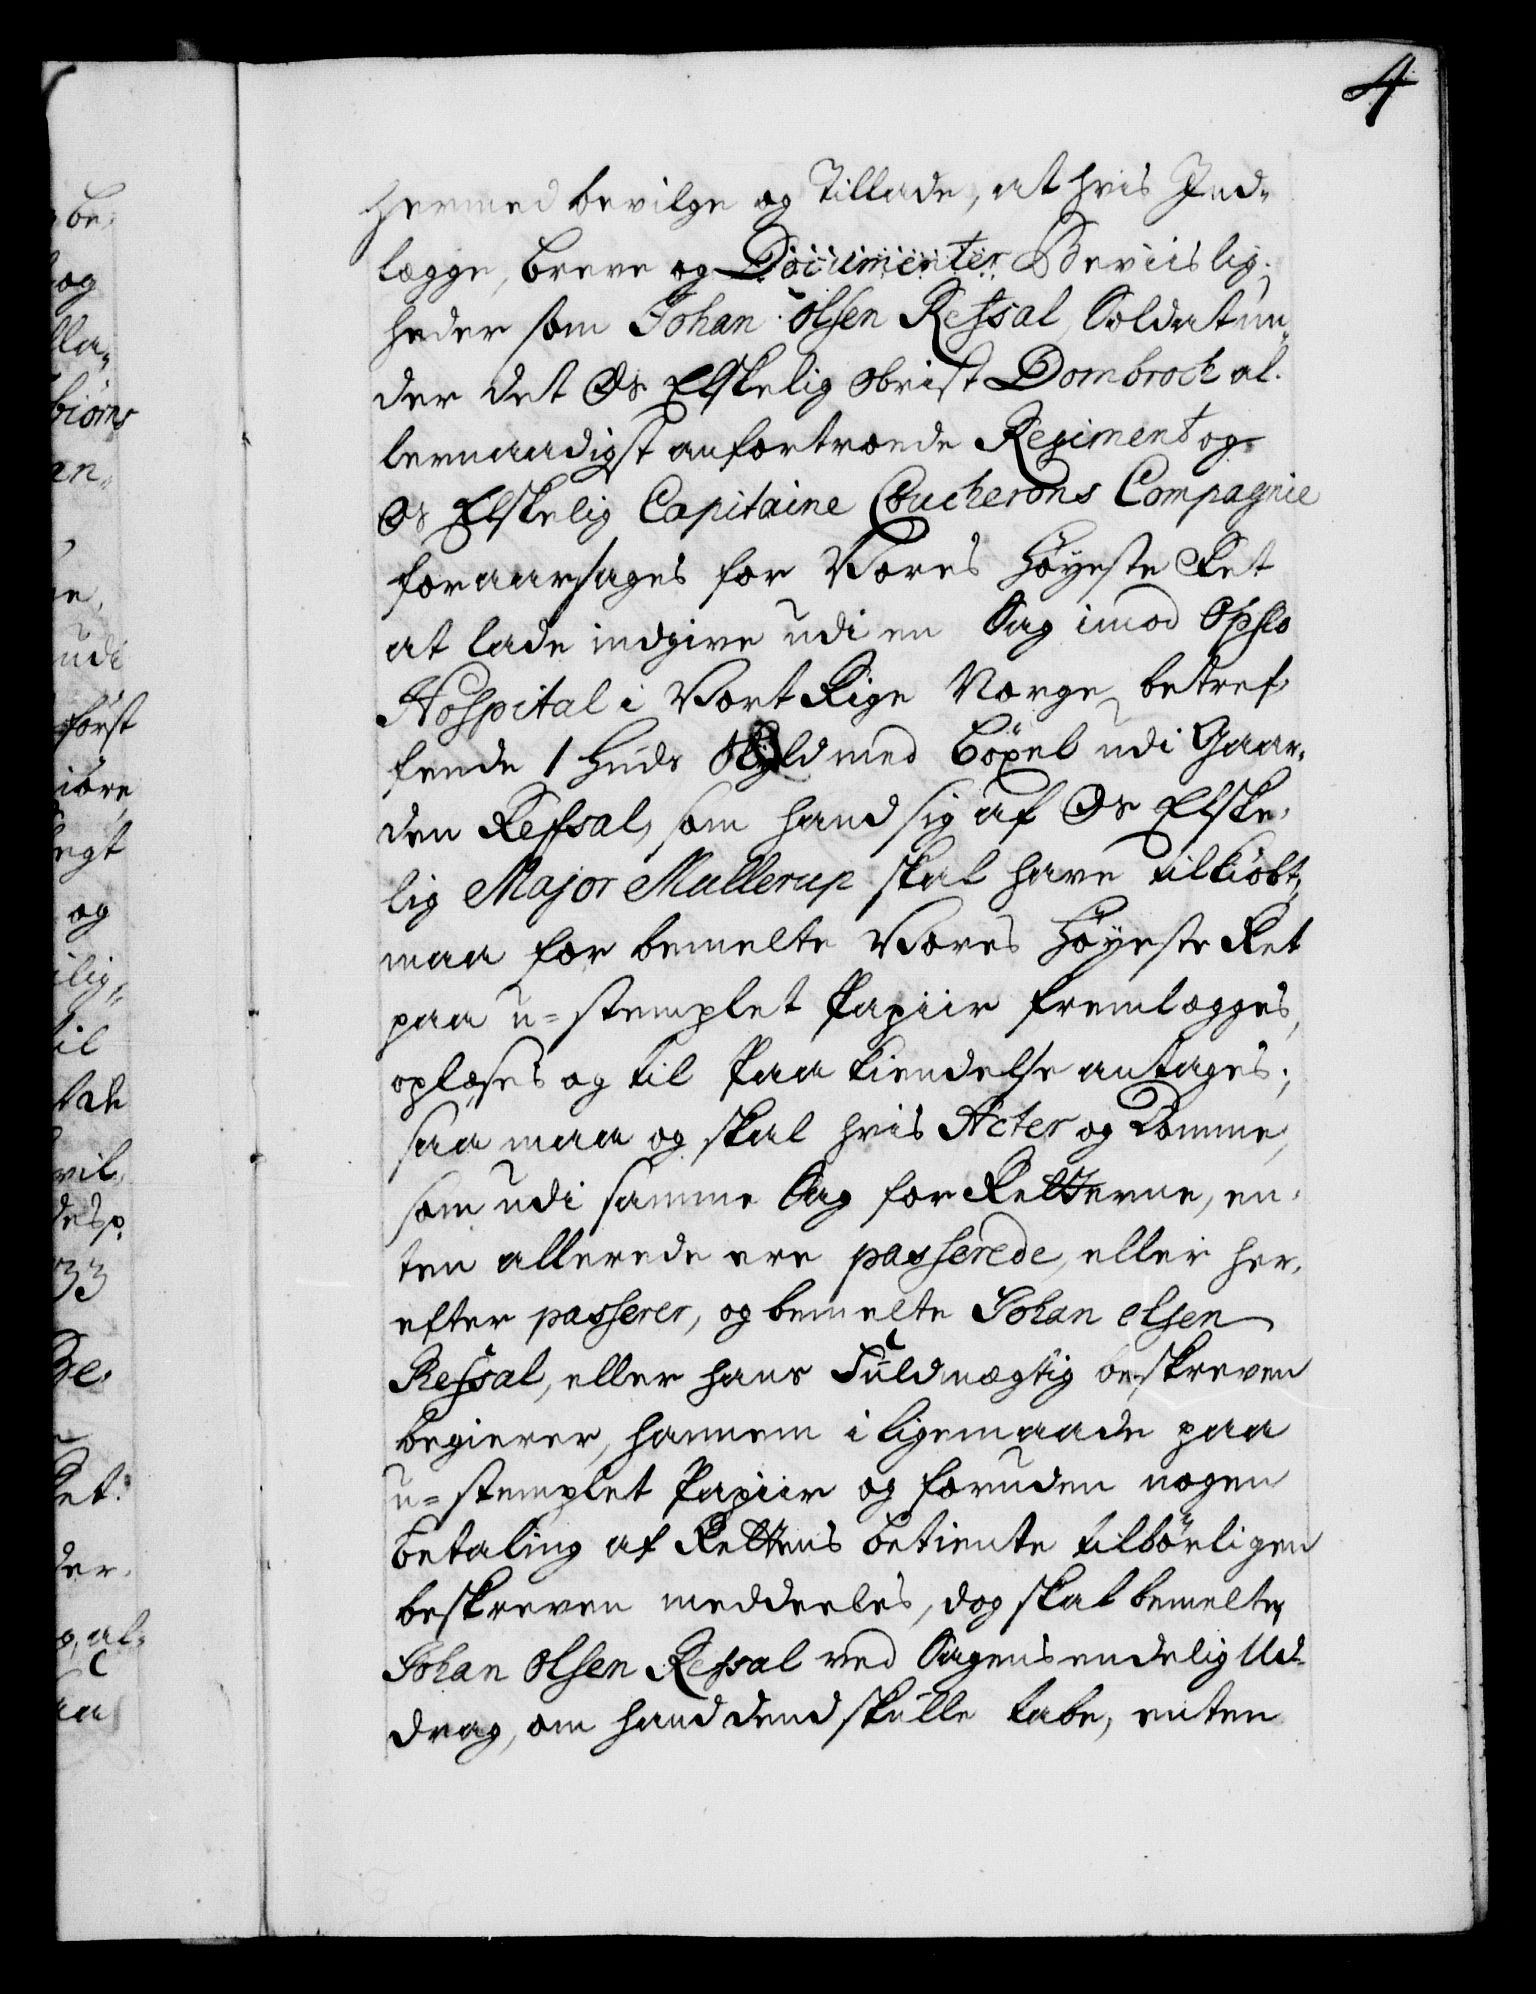 4
hermed bevilge og Tillade, at hvis Ind-
lægge, breve og Documenter Beviislig-
heder som Johan Olsen Refsal, Soldat un-
der det Os Elskelig Obrist Dombroch al-
lernaadigst anfortroede Regiment og
Os Elskelig Capitaine Coucherons Compagnie
foraarsages for Vores Höyeste Ret
at lade indgive udi en Sag imod Opslo
Hospital i Vort Rige Norge, betref-
fende 1 Huds Skyld med böxel udi Gaar-
den Refsal, som hand sig af Os Elske-
lig Major Mullerup skal have tilkiöbt,
maa for bemelte Vores Höyeste Ret
paa u=stemplet Papiir fremlægges,
oplæses og til Paakiendelse antages;
saa maa og skal hvis Acter og Domme,
som udi samme Sag for Retterne, en-
ten allerede ere passerede, eller her-
efter passerer, og bemelte Johan Olsen
Refsal, eller hans Fuldmægtig beskreven
begierer, hannem i ligemaade paa
u=stemplet Papiir og foruden nogen
betaling af Rettens betiente tilbörligen
beskreven meddeeles, dog skal bemelte
Johan Olsen Refsal ved Sagens endelig Ud-
drag, om hand dend skulle tabe, enten
be-
og
lla-
biörns
en-
udi
först
iöre
egt
og
ilig-
til
vil
desp
33
Be-
Ret
der
og, al-